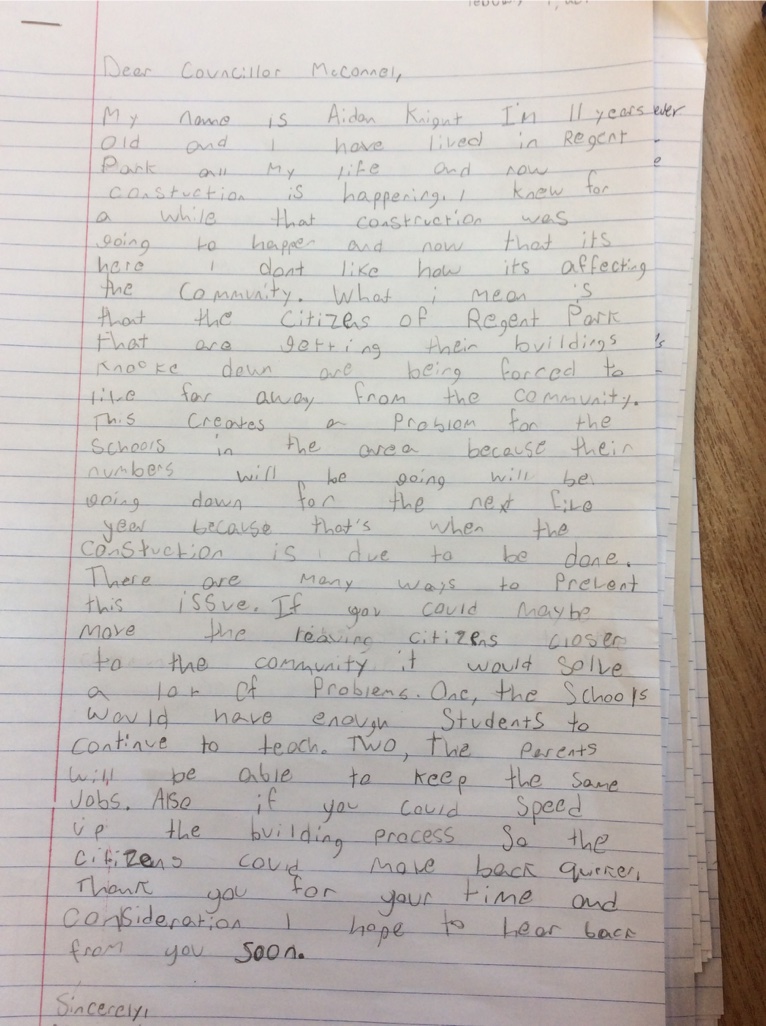 Dear Councillor McConnel,
My name is Aidan Knight I'm 11 years
ever
old and I have lived in Regent
Park all my life and now
constuction is happening. I knew for
a while that construction was
going to happen and now that its
here I dont like how its affecting
the community. What i mean is
that the citizens of Regent Park
that are getting their buildings
knocke down are being forced to
live far away from the community.
This creates a Problom for the
schools in the area because their
numbers will be going will be
going down for the next five
year because that's when the
constuction is due to be done.
There are many ways to Prevent
this issue. If you could maybe
move the leaving citizens closer
to the community it would solve
a lot of Problems. One, the schools
would have enough students to
continue to teach. Two, the parents
will be able to keep the same
Jobs. Also if you could speed
up the building process so the
citizens could move back quicker.
Thank you for your time and
consideration I hope to hear back
from you soon.
Sincerely,